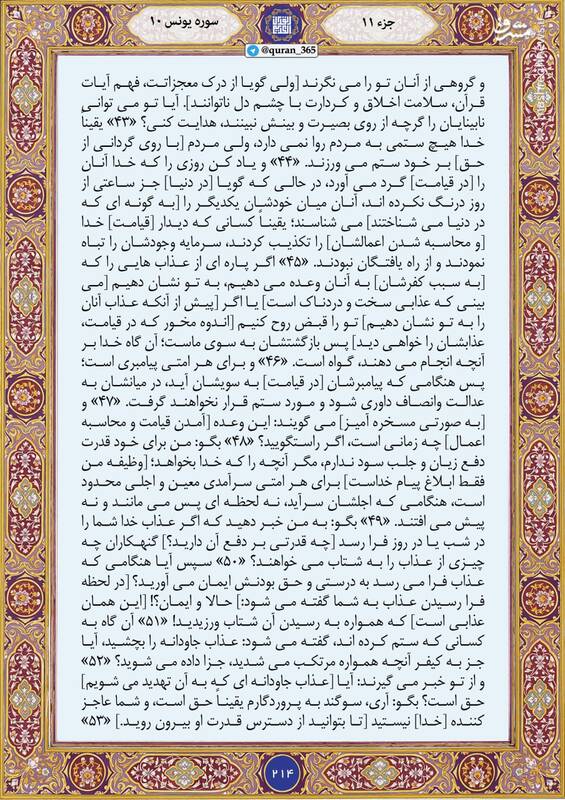 سوره یونس ۱۰
جزء ۱۱
@quran_365
مشرق
و گروهی از آنان تو را می نگرند [ولی گویا از درک معجزاتت، فهم آیات
قرآن، سلامت اخلاق و کردارت با چشم دل ناتوانند]. آیا تو می توانی
نابینایان را گرچه از روی بصیرت و بینش نبینند، هدایت کنی؟ «۴۳» یقیناً
خدا هیچ ستمی به مردم روا نمی دارد، ولی مردم [با روی گردانی از
حق] بر خود ستم می ورزند. «۴۴» و یاد کن روزی را که خدا آنان
را [در قیامت] گرد می آورد، در حالی که گویا [در دنیا] جز ساعتی از
روز درنگ نکرده اند، آنان میان خودشان یکدیگر را [به گونه ای که
در دنیا می شناختند] می شناسند؛ یقیناً کسانی که دیدار [قیامت] خدا
[و محاسبه شدن اعمالشان] را تکذیب کردند، سرمایه وجودشان را تباه
نمودند و از راه یافتگان نبودند. «۴۵» اگر پاره ای از عذاب هایی را که
[به سبب کفرشان] به آنان وعده می دهیم، به تو نشان دهیم [می
بینی که عذابی سخت و دردناک است] یا اگر [پیش از آنکه عذاب آنان
را به تو نشان دهیم] تو را قبض روح کنیم [اندوه مخور که در قیامت،
عذابشان را خواهی دید] پس بازگشتشان به سوی ماست؛ آن گاه خدا بر
آنچه انجام می دهند، گواه است. «۴۶» و برای هر امتی پیامبری است؛
پس هنگامی که پیامبرشان [در قیامت] به سویشان آید، در میانشان به
عدالت وانصاف داوری شود و مورد ستم قرار نخواهند گرفت. «۴۷» و
[به صورتی مسخره آمیز] می گویند: این وعده [آمدن قیامت و محاسبه
اعمال] چه زمانی است، اگر راستگویید؟ «۴۸» بگو: من برای خود قدرت
دفع زیان و جلب سود ندارم، مگر آنچه را که خدا بخواهد؛ [وظیفه من
فقط ابلاغ پیام خداست] برای هر امتی سرآمدی معین و اجلی محدود
است، هنگامی که اجلشان سرآید، نه لحظه ای پس می مانند و نه
پیش می افتند. «۴۹» بگو: به من خبر دهید که اگر عذاب خدا شما را
در شب یا در روز فرا رسد [چه قدرتی بر دفع آن دارید؟] گنهکاران چه
چیزی از عذاب را به شتاب می خواهند؟ «۵۰» سپس آیا هنگامی که
عذاب فرا می رسد به درستی و حق بودنش ایمان می آورید؟ [در لحظه
فرا رسیدن عذاب به شما گفته می شود:] حالا و ایمان؟! [این همان
عذابی است] که همواره به رسیدن آن شتاب ورزیدید! «۵۱» آن گاه به
کسانی که ستم کرده اند، گفته می شود: عذاب جاودانه را بچشید، آیا
جز به کیفر آنچه همواره مرتکب می شدید، جزا داده می شوید؟ «۵۲»
و از تو خبر می گیرند: آیا [عذاب جاودانه ای که به آن تهدید می شویم]
حق است؟ بگو: آری، سوگند به پروردگارم یقیناً حق است، و شما عاجز
کننده [خدا] نیستید [تا بتوانید از دسترس قدرت او بیرون روید.] «۵۳»
۲۱۴